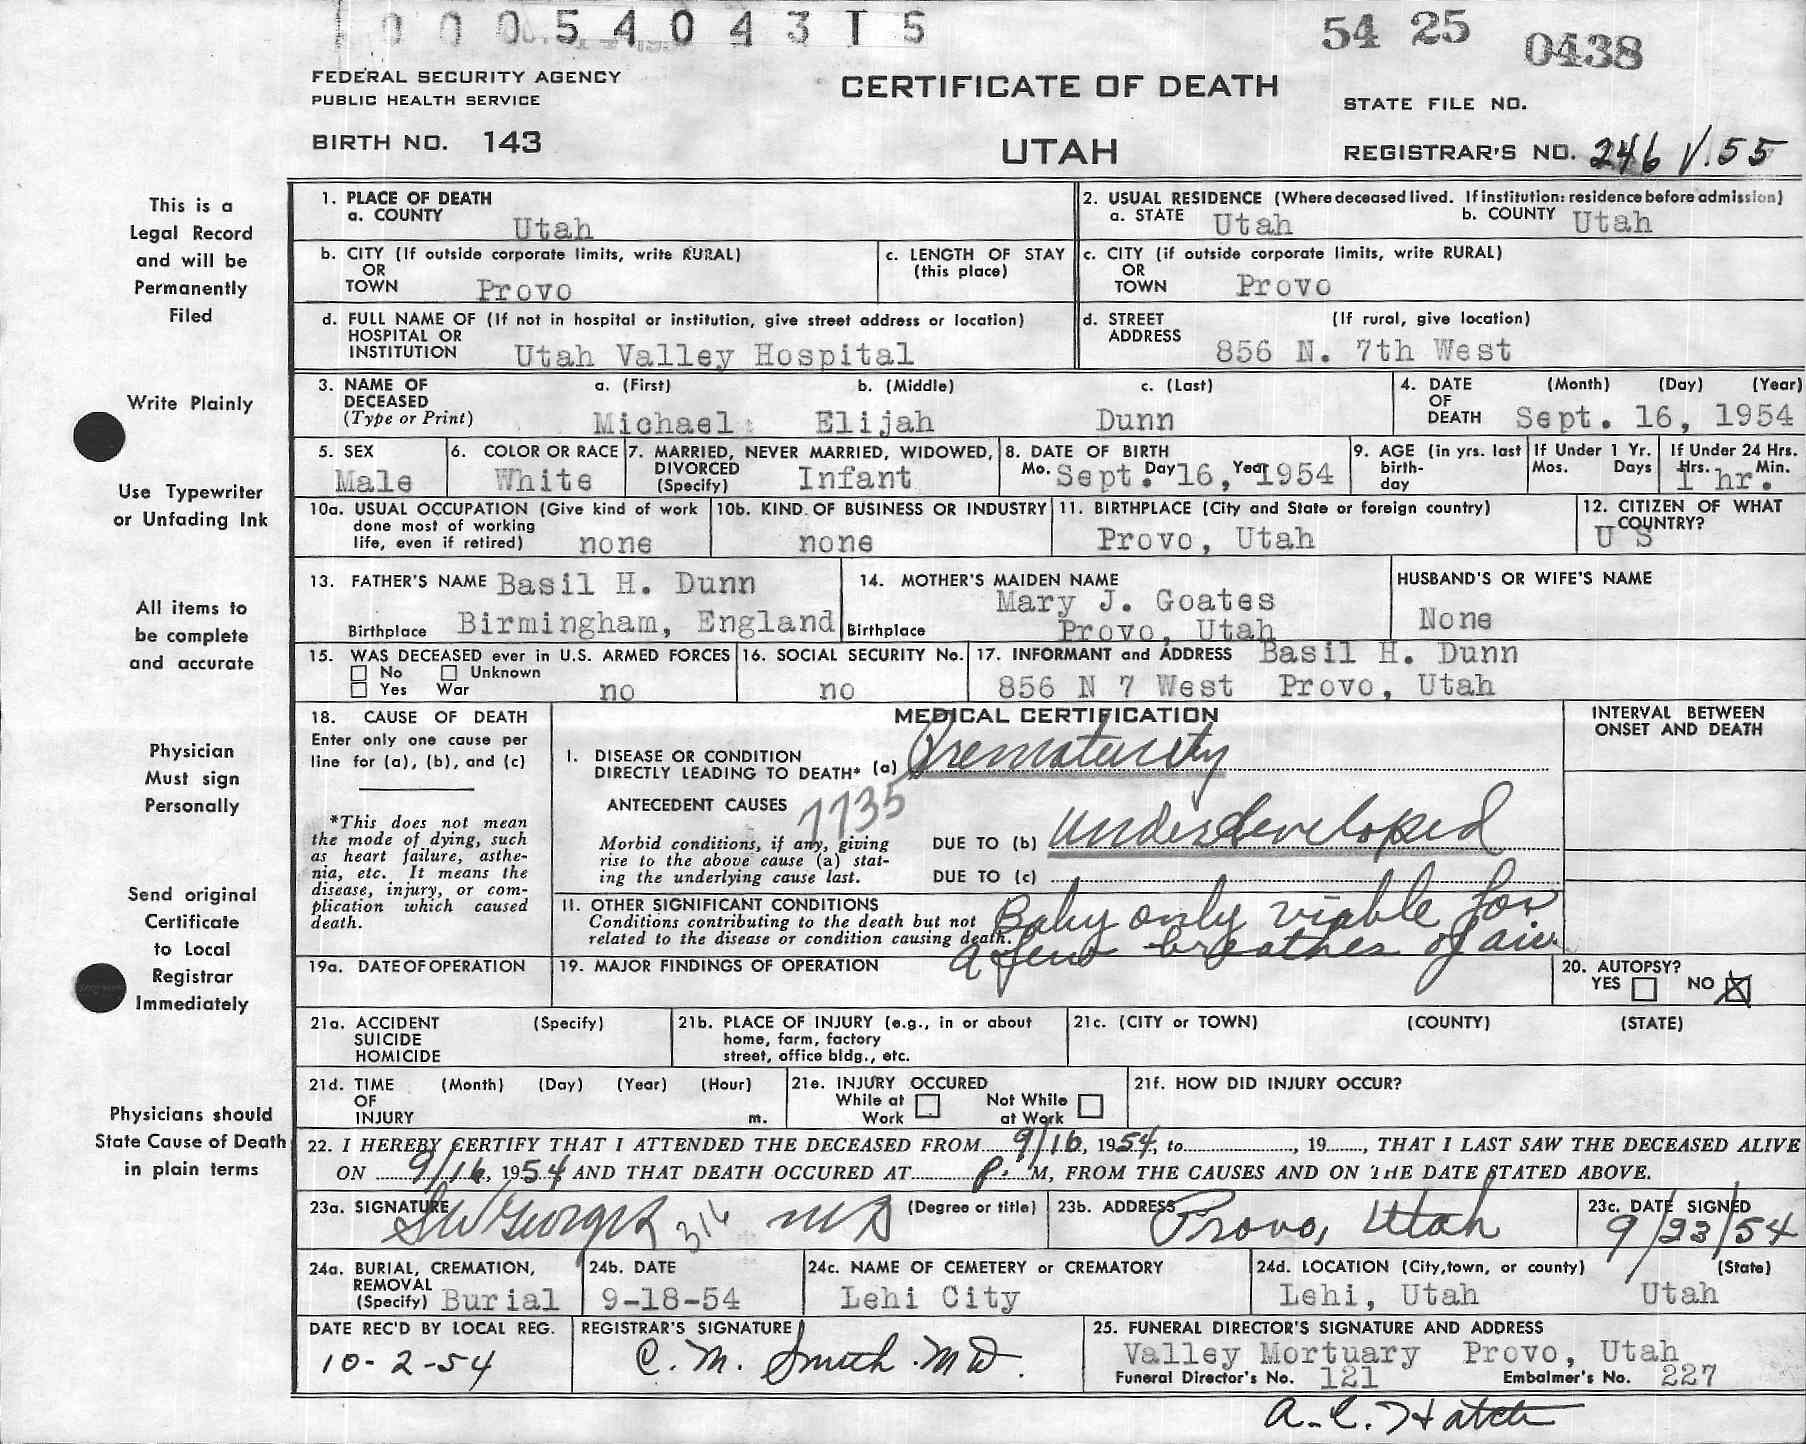 10005404315
54 25 0438
FEDERAL SECURITY AGENCY
PUBLIC HEALTH SERVICE
CERTIFICATE OF DEATH
STATE FILE NO.
BIRTH NO. 143
UTAH
REGISTRAR'S NO. 246 V.55
This is a
Legal Record
and will be
Permanently
Filed
Write Plainly
Use Typewriter
or Unfading Ink
All items to
be complete
and accurate
Physician
Must sign
Personally
Send original
Certificate
to Local
Registrar
Immediately
Physicians should
State Cause of Death
in plain terms
1. PLACE OF DEATH
a. COUNTY Utah
2. USUAL RESIDENCE (Where deceased lived. If institution: residence before admission)
a. STATE Utah b. COUNTY Utah
b. CITY (If outside corporate limits, write RURAL)
OR
TOWN Provo
c. LENGTH OF STAY
(this place)
c. CITY (if outside corporate limits, write RURAL)
OR
TOWN Provo
d. FULL NAME OF (If not in hospital or institution, give street address or location)
HOSPITAL OR
INSTITUTION Utah Valley Hospital
d. STREET (If rural, give location)
ADDRESS 856 N. 7th West
3. NAME OF DECEASED
(Type or Print)
a. (First) b. (Middle) c. (Last)
Michael Elijah Dunn
4. DATE OF DEATH (Month) (Day) (Year)
Sept. 16, 1954
5. SEX
Male
6. COLOR OR RACE
White
7. MARRIED, NEVER MARRIED, WIDOWED,
DIVORCED
(Specify) Infant
8. DATE OF BIRTH
Mo. Sept. Day 16, Year 1954
9. AGE (in yrs. last
birth-
day
If Under 1 Yr.
Mos. Days
If Under 24 Hrs.
Hrs. Min.
1 hr.
10a. USUAL OCCUPATION (Give kind of work
done most of working
life, even if retired) none
10b. KIND OF BUSINESS OR INDUSTRY
none
11. BIRTHPLACE (City and State or foreign country)
Provo, Utah
12. CITIZEN OF WHAT
COUNTRY?
U S
13. FATHER'S NAME Basil H. Dunn
Birthplace Birmingham, England
14. MOTHER'S MAIDEN NAME
Mary J. Goates
Birthplace Provo, Utah
HUSBAND'S OR WIFE'S NAME
None
15. WAS DECEASED ever in U.S. ARMED FORCES
No Unknown
Yes War no
16. SOCIAL SECURITY No.
no
17. INFORMANT and ADDRESS Basil H. Dunn
856 N 7 West Provo, Utah
18. CAUSE OF DEATH
Enter only one cause per
line for (a), (b), and (c)
*This does not mean
the mode of dying, such
as heart failure, asthe-
nia, etc. It means the
disease, injury, or com-
plication which caused
death.
MEDICAL CERTIFICATION
I. DISEASE OR CONDITION
DIRECTLY LEADING TO DEATH* (a) Prematurity
ANTECEDENT CAUSES 7735
Morbid conditions, if any, giving
rise to the above cause (a) stat-
ing the underlying cause last.
DUE TO (b) Underdeveloped
DUE TO (c)
II. OTHER SIGNIFICANT CONDITIONS
Conditions contributing to the death but not
related to the disease or condition causing death.
Baby only viable for
a few breathes of air
INTERVAL BETWEEN
ONSET AND DEATH
19a. DATE OF OPERATION
19. MAJOR FINDINGS OF OPERATION
20. AUTOPSY?
YES NO X
21a. ACCIDENT (Specify)
SUICIDE
HOMICIDE
21b. PLACE OF INJURY (e.g., in or about
home, farm, factory
street, office bldg., etc.
21c. (CITY or TOWN) (COUNTY) (STATE)
21d. TIME (Month) (Day) (Year) (Hour)
OF
INJURY m.
21e. INJURY OCCURED
While at Work Not While at Work
21f. HOW DID INJURY OCCUR?
22. I HEREBY CERTIFY THAT I ATTENDED THE DECEASED FROM 9/16, 1954, to ......, 19....., THAT I LAST SAW THE DECEASED ALIVE
ON 9/16, 1954 AND THAT DEATH OCCURED AT P. M, FROM THE CAUSES AND ON THE DATE STATED ABOVE.
23a. SIGNATURE SW Georges 316 MD (Degree or title)
23b. ADDRESS Provo, Utah
23c. DATE SIGNED
9/23/54
24a. BURIAL, CREMATION,
REMOVAL
(Specify) Burial
24b. DATE
9-18-54
24c. NAME OF CEMETERY OR CREMATORY
Lehi City
24d. LOCATION (City, town, or county) (State)
Lehi, Utah Utah
DATE REC'D BY LOCAL REG.
10-2-54
REGISTRAR'S SIGNATURE
C. M. Smith MD.
25. FUNERAL DIRECTOR'S SIGNATURE AND ADDRESS
Valley Mortuary Provo, Utah
Funeral Director's No. 121 Embalmer's No. 227
A. C. Hatch